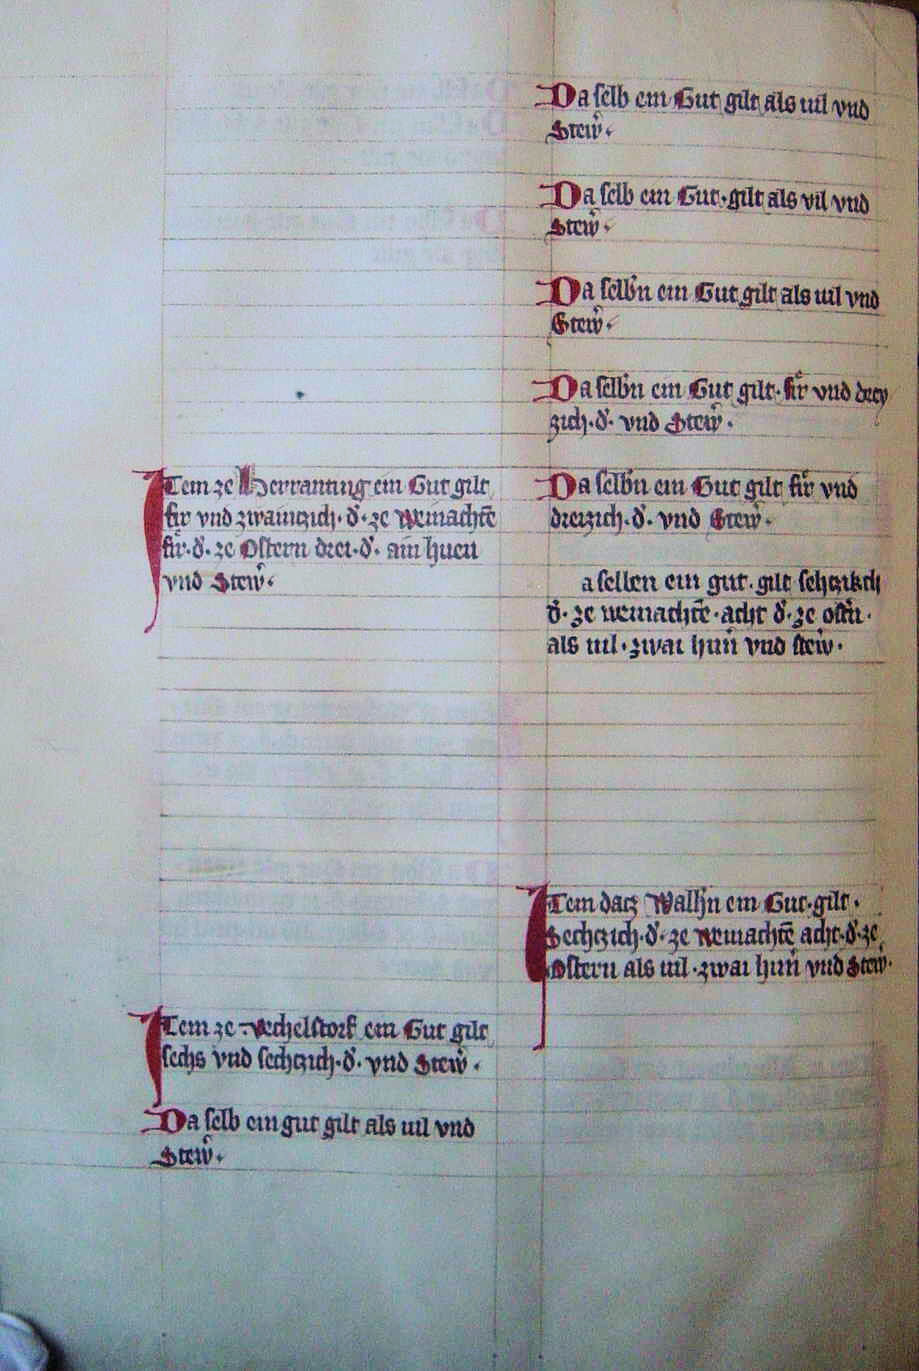 Item ze Herranting ein Gut gilt
fir vnd zwaintzich · d̕ · ze Weinachtē
fir · d̕ · ze Ostern drei · d̕ · ain huen
vnd Stew̕ ·
Item ze Vechelstorf ein Gut gilt
sechs vnd sechtzich · d̕ · vnd Stew̕ ·
Da selb ein gut gilt als uil vnd
Stew̕ ·
Da selb ein Gut gilt als uil vnd
Stew̕ ·
Da selb ein Gut · gilt als vil vnd
Stew̕ ·
Da selb̕n ein Gut gilt als uil vnd
Stew̕ ·
Da selb̕n ein Gut gilt · fir vnd drey
zich · d̕ · vnd Stew̕ ·
Da selb̕n ein Gut gilt fir vnd
dreizich · d̕ · vnd Stew̕ ·
a sellen ein gut · gilt
d̕ · ze weinachtē · acht d̕ · ze ost̕n ·
als uil · zwai hun̄ vnd stew̕ ·
Item datz Walh̕n ein Gut · gilt ·
Sechtzich · d̕ · ze Weinachtē acht · d̕ · ze
Ostern als uil · zwai hun̄ vnd Stew̕ ·